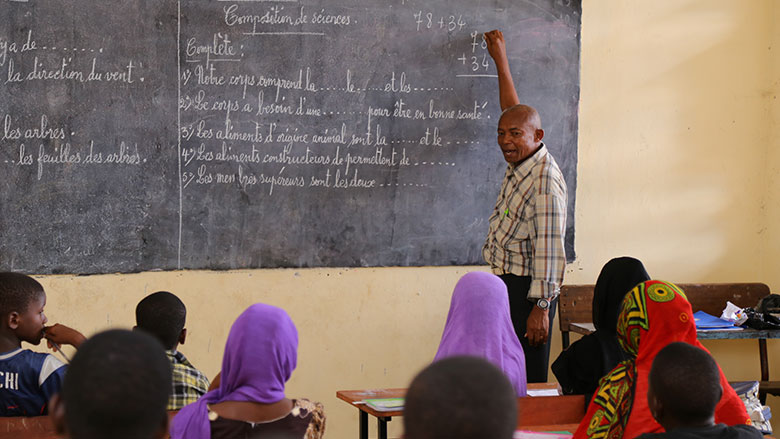 ya de .......
la direction du vent.
les arbres.
...les feuilles des arbres.
Composition de sciences.
Complète :
1) Notre corps comprend la ...... le ...... et les ......
2) Le corps a besoin d'une ......... pour être en bonne santé.
3) Les aliments d'origine animal sont la ...... et le ......
4) Les aliments constructeurs de permettent de ......
5) Les membres supérieurs sont les deux .........
78 + 34
78
+ 34
CHI